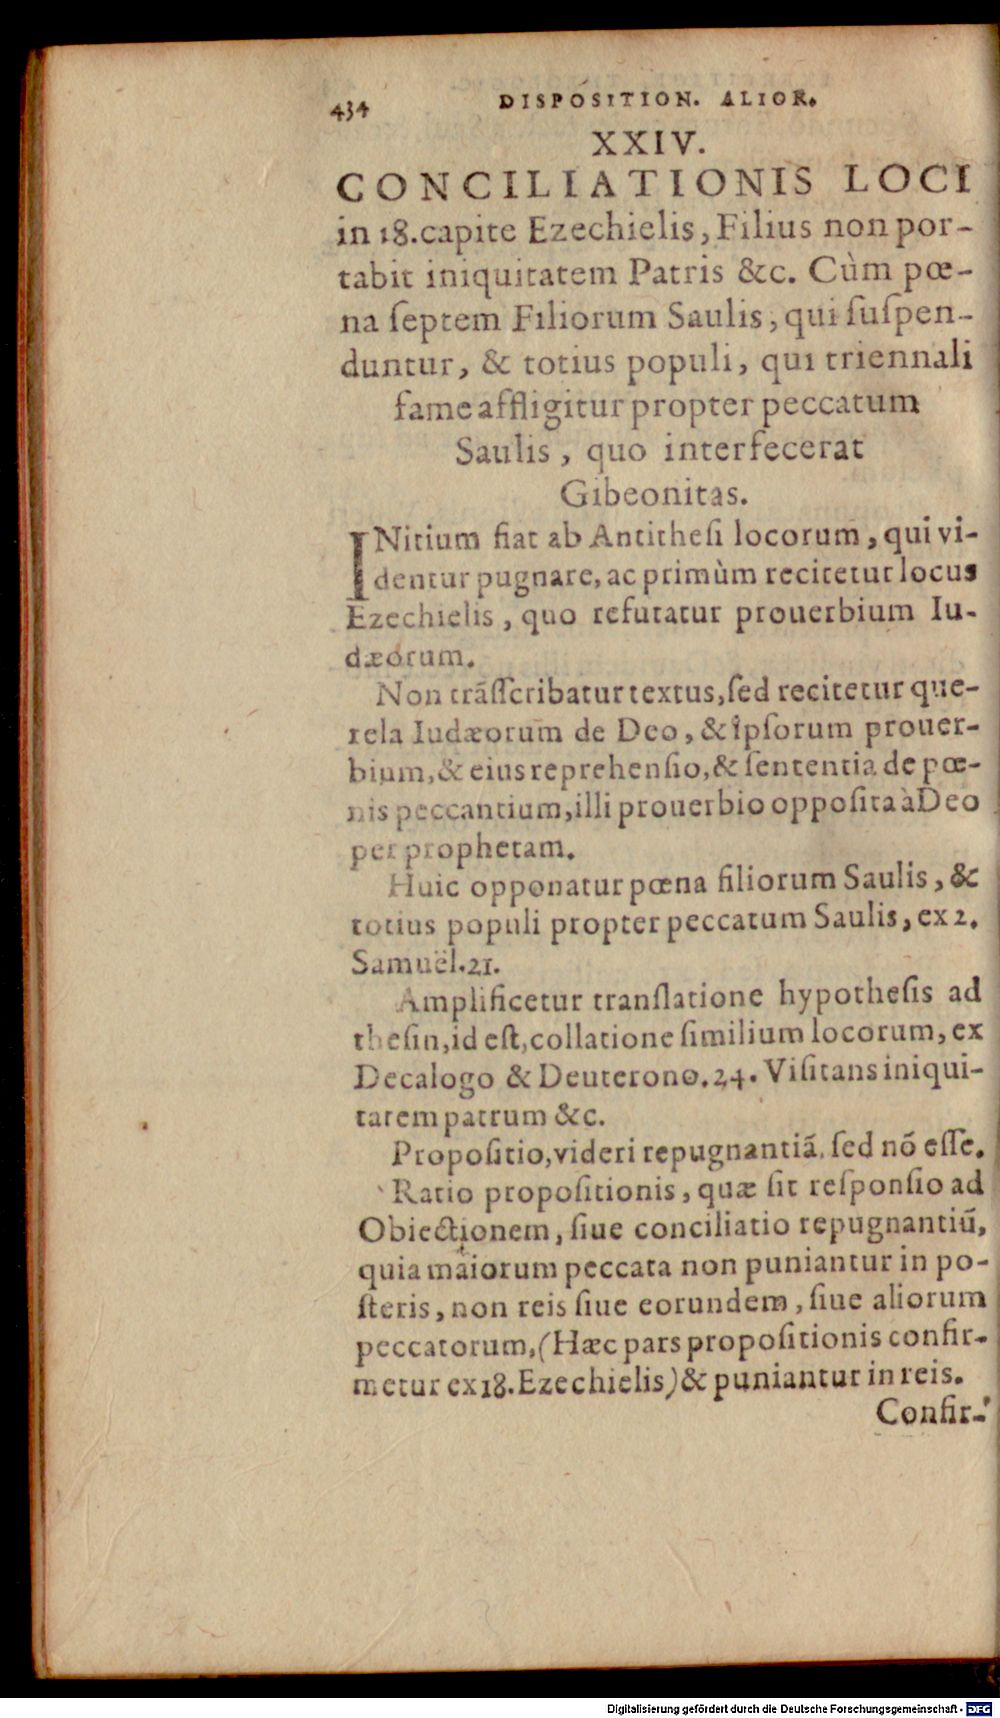 434 DISPOSITION. ALIOR.
XXIV.
CONCILIATIONIS LOCI
in 18.capite Ezechielis, Filius non por-
tabit iniquitatem Patris &c. Cùm pœ-
na ſeptem Filiorum Saulis, qui ſuſpen-
duntur, & totius populi, qui triennali
fame affligitur propter peccatum
Saulis, quo interfecerat
Gibeonitas.
INitium fiat ab Antitheſi locorum, qui vi-
dentur pugnare, ac primùm recitetur locus
Ezechielis, quo refutatur prouerbium Iu-
dæorum.
Non trãſſcribatur textus, ſed recitetur que-
rela Iudæorum de Deo, & ipſorum prouer-
bium, & eius reprehenſio, & ſententia de pœ-
nis peccantium, illi prouerbio oppoſita à Deo
per prophetam.
Huic opponatur pœna filiorum Saulis, &
totius populi propter peccatum Saulis, ex 2.
Samuël.21.
Amplificetur tranſlatione hypotheſis ad
theſin, id eſt, collatione ſimilium locorum, ex
Decalogo & Deuterono.24. Viſitans iniqui-
tatem patrum &c.
Propoſitio, videri repugnantiã, ſed nõ eſſe.
Ratio propoſitionis, quæ ſit reſponſio ad
Obiectionem, ſiue conciliatio repugnantiũ,
quia maiorum peccata non puniantur in po-
ſteris, non reis ſiue eorundem, ſiue aliorum
peccatorum, (Hæc pars propoſitionis confir-
metur ex 18. Ezechielis) & puniantur in reis.
Confir-
Digitalisierung gefördert durch die Deutsche Forschungsgemeinschaft - DFG